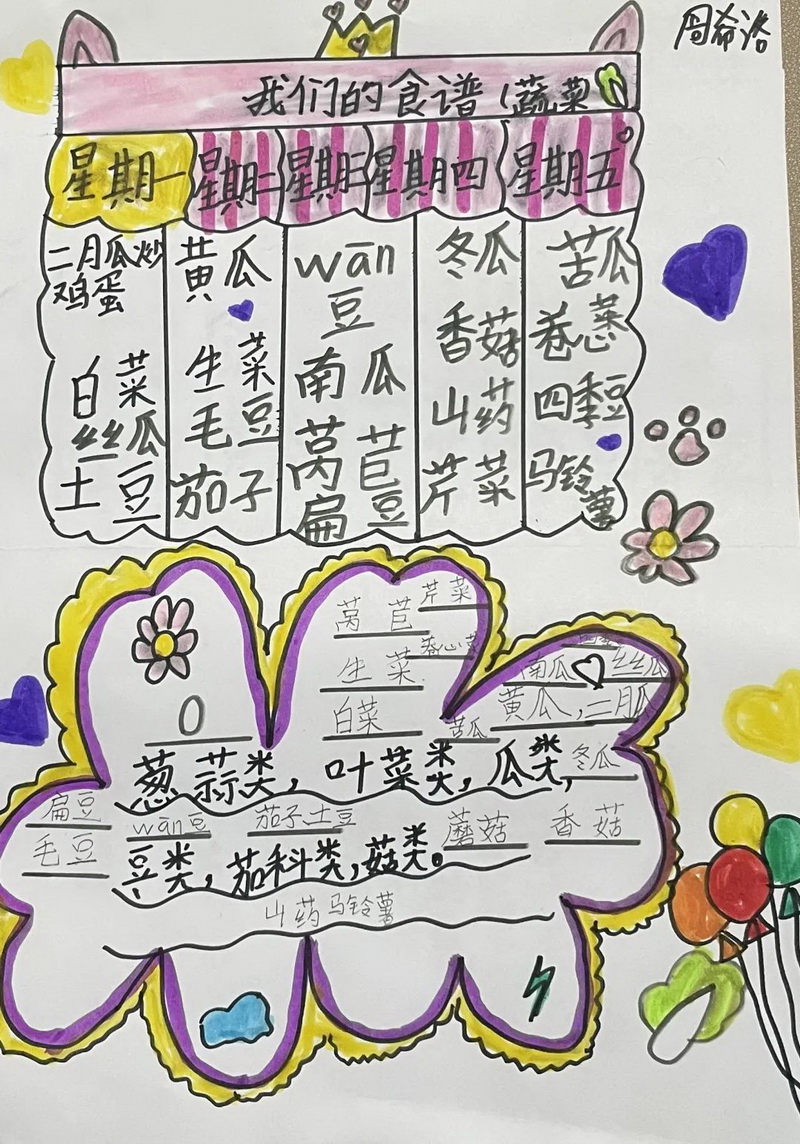 周希洛
我们的食谱(蔬菜
星期一 星期二 星期三 星期四 星期五
二月瓜炒
鸡蛋
白菜
丝瓜
土豆
黄瓜
生菜
毛豆
茄子
wān
豆
南瓜
莴苣
扁豆
冬瓜
香菇
山药
芹菜
苦瓜
卷心菜
四季豆
马铃
薯
莴苣 芹菜
生菜 卷心菜
南瓜 丝瓜
0 白菜 苦瓜 黄瓜,二月瓜
葱蒜类,叶菜类,瓜类,冬瓜
扁豆 wān豆 茄子土豆 蘑菇 香菇
毛豆 豆类,茄科类,菇类。
山药马铃薯